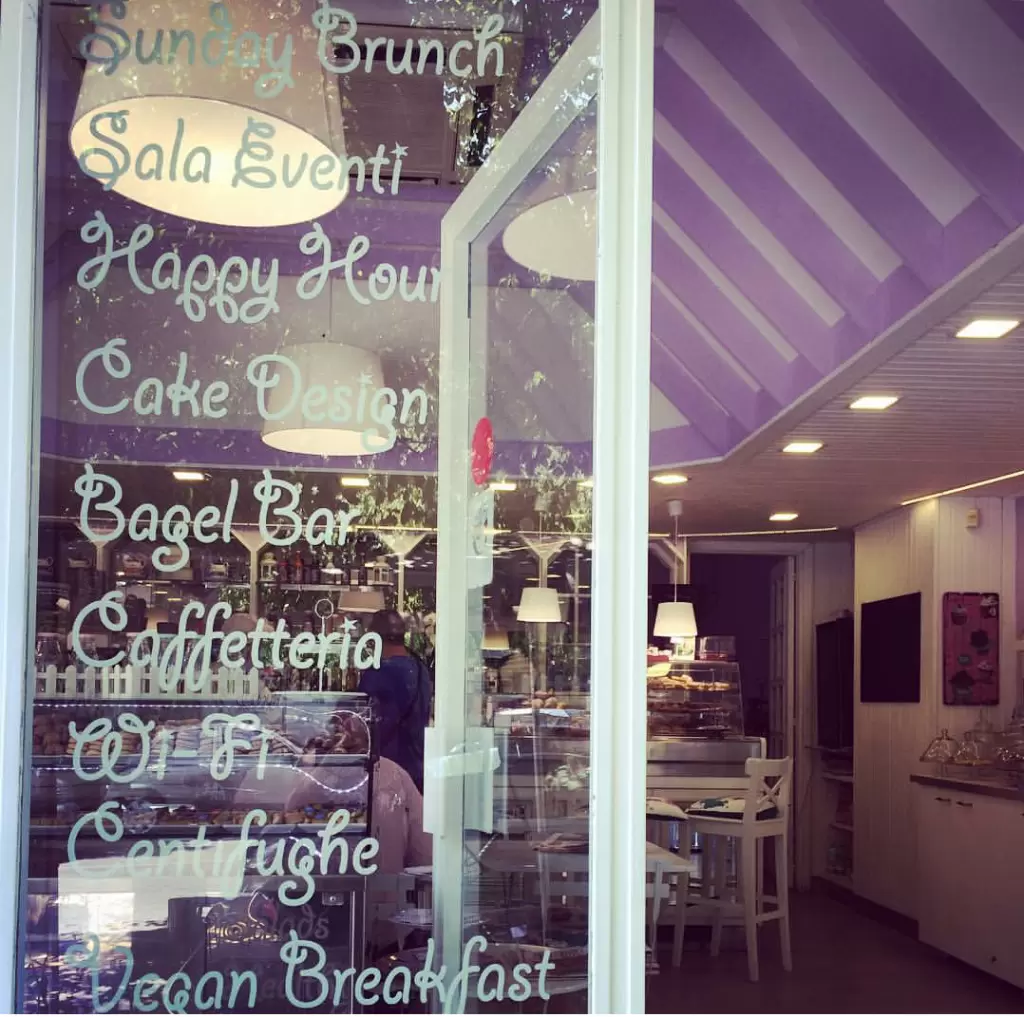 Sunday Brunch
Sala Eventi
Happy Hour
Cake Design
Bagel Bar
Caffetteria
Wi-Fi
Centifughe
Vegan Breakfast